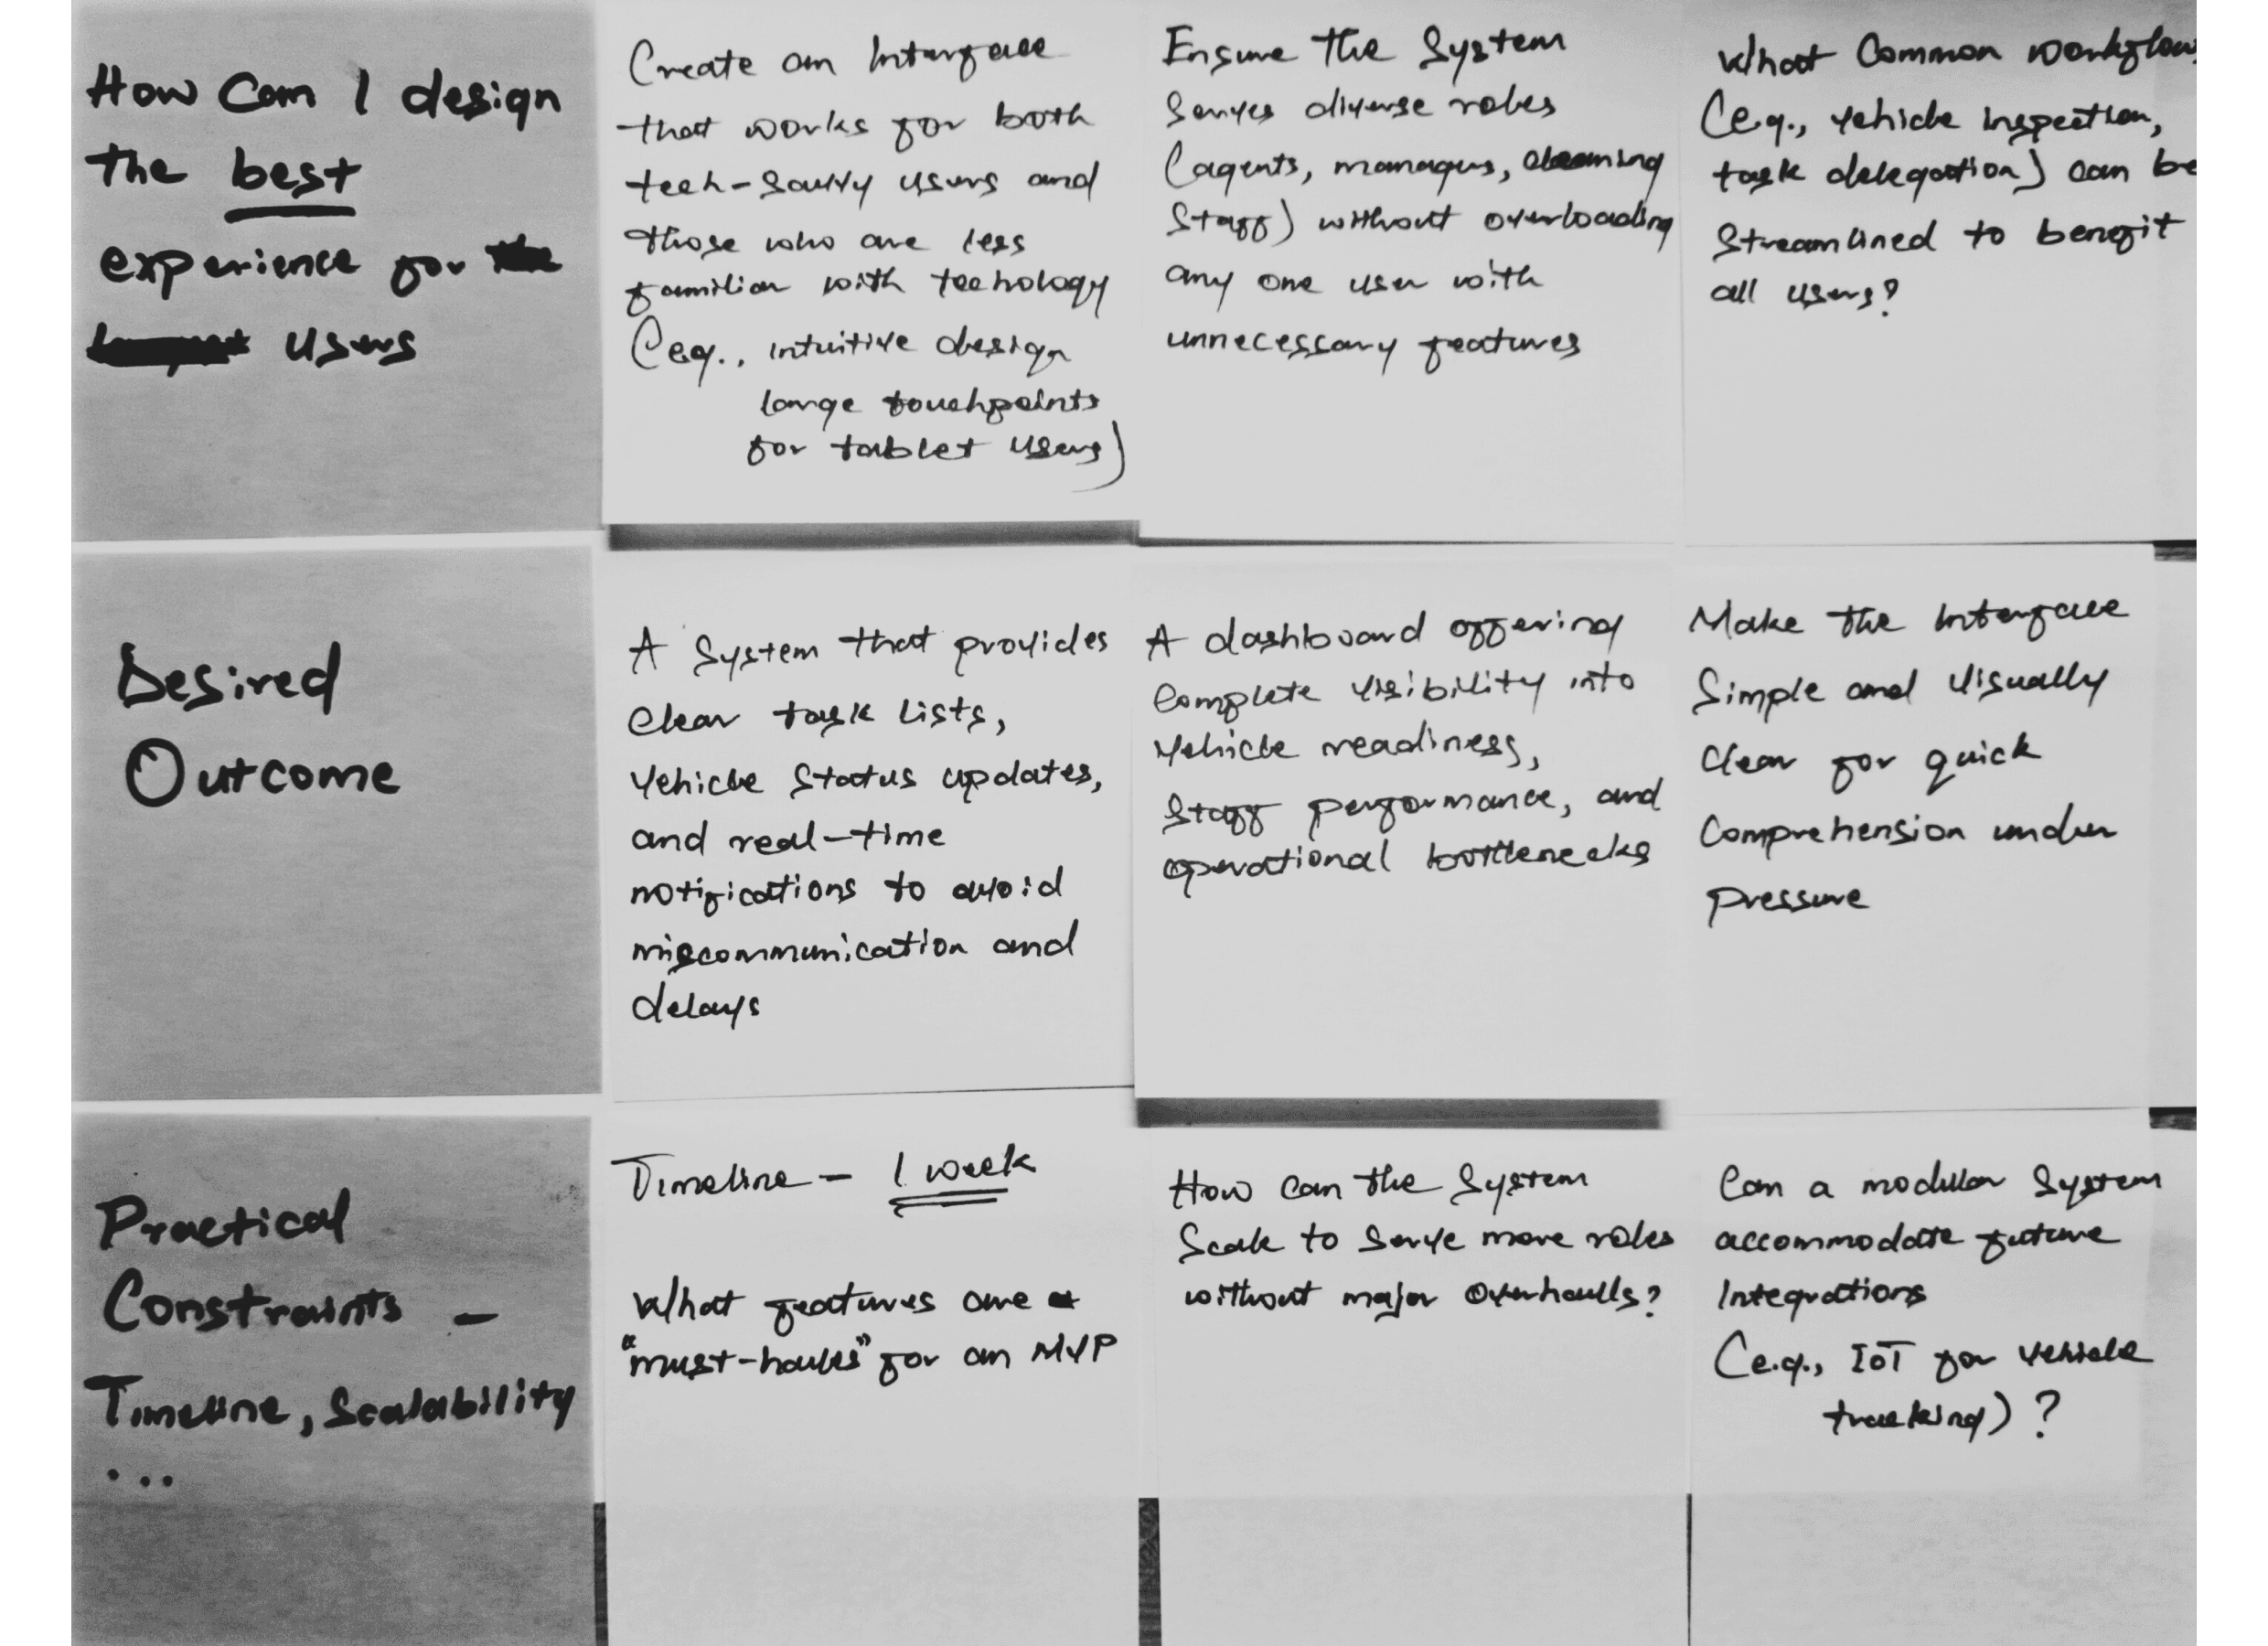 How Can I design
the best
experience for
users
Create an Interface
that works for both
tech-savvy users and
those who are less
familiar with techology
(eg., intuitive design
large touchpoints
for tablet users)
Ensure the System
Serves diverse roles
(agents, managers, cleaning
Staff) without overloading
any one user with
unnecessary features
What Common workflow
(e.g., vehicle inspection,
task delegation) can be
Streamlined to benefit
all users?
Desired
Outcome
A System that provides
Clear task lists,
vehicle status updates,
and real-time
notifications to avoid
miscommunication and
delays
A dashboard offering
Complete visibility into
vehicle readiness,
Staff performance, and
operational bottlenecks
Make the Interface
Simple and visually
Clear for quick
Comprehension under
pressure
Practical
Constraints -
Timeline, Scalability
...
Timeline - 1 week
What features are
"must-haves" for an MVP
How can the System
Scale to Serve more roles
without major overhauls?
Can a modular System
accommodate future
Integrations
(e.g., IoT for vehicle
tracking)?